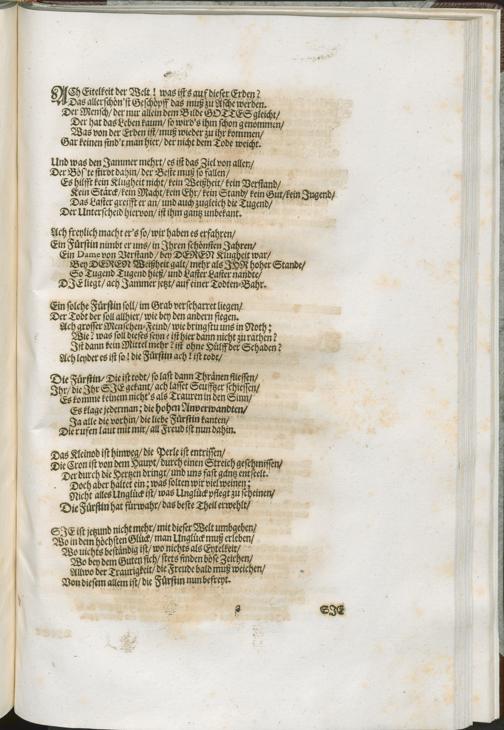 ACh Eitelkeit der Welt! was ists auf dieser Erden?
Das allerschön'st Geschöpff das muß zu Asche werden.
Der Mensch/ der nur allein dem Bilde GOTTES gleicht/
Der hat das Leben kaum/ so wird's ihm schon genommen/
Was von der Erden ist/ muß wieder zu ihr kommen/
Gar keinen find't man hier/ der nicht dem Tode weicht.
Und was den Jammer mehrt/ es ist das Ziel von allen/
Der Bös' te stirbt dahin/ der Beste muß so fallen/
Es hilfft kein Klugheit nicht/ kein Weißheit/ kein Verstand/
Kein Stärck/ kein Macht/ kein Ehr/ kein Stand/ kein Gut/ kein Jugend/
Das Laster greifft er an/ und auch zugleich die Tugend/
Der Unterscheid hiervon/ ist ihm gantz unbekant.
Ach freylich macht er's so/ wir haben es erfahren/
Ein Fürstin nimbt er uns/ in Ihren schönsten Jahren/
Ein Dame von Verstand/ bey DEREN Klugheit war/
Bey DEREN Weißheit galt/ mehr als IHR hoher Stande/
So Tugend Tugend hieß/ und Laster Laster nandte/
DIE liegt/ ach Jammer jetzt/ auf einer Todten-Bahr.
Ein solche Fürstin soll/ im Grab verscharret liegen/
Der Todt der soll allhier/ wie bey den andern siegen.
Ach grosser Menschen-Feind/ wie bringstu uns in Noth;
Wie? was soll dieses seyn? ist hier dann nicht zu rathen?
Ist dann kein Mittel mehr? ist ohne Hülff der Schaden?
Ach leyder es ist so! die Fürstin ach! ist todt/
Die Fürstin/ Die ist todt/ so last dann Thränen fliessen/
Ihr/ die Ihr SIE gekant/ ach lasset Seuffzer schiessen/
Es komme keinem nicht's als Trauren in den Sinn/
Es klage jederman; die hohen Anverwandten/
Ja alle die vorhin/ die liebe Fürstin kanten/
Die rufen laut mit mir/ all Freud ist nun dahin.
Das Kleinod ist hinweg/ die Perle ist entrissen/
Die Cron ist von dem Haupt/ durch einen Streich geschmissen/
Der durch die Hertzen dringt/ und uns fast gäntz entseelt.
Doch aber haltet ein; was solten wir viel weinen;
Nicht alles Unglück ist/ was Unglück pflegt zu scheinen/
Die Fürstin hat fürwahr/ das beste Theil erwehlt/
SIE ist jetzund nicht mehr/ mit dieser Welt umbgeben/
Wo in dem höchsten Glück/ man Unglück muß erleben/
Wo nichts beständig ist/ wo nichts als Eytelkeit/
Wo bey dem Guten sich/ stets finden böse Zeichen/
Allwo der Traurigkeit/ die Freude bald muß weichen/
Von diesem allem ist/ die Fürstin nun befreyt.
SIE